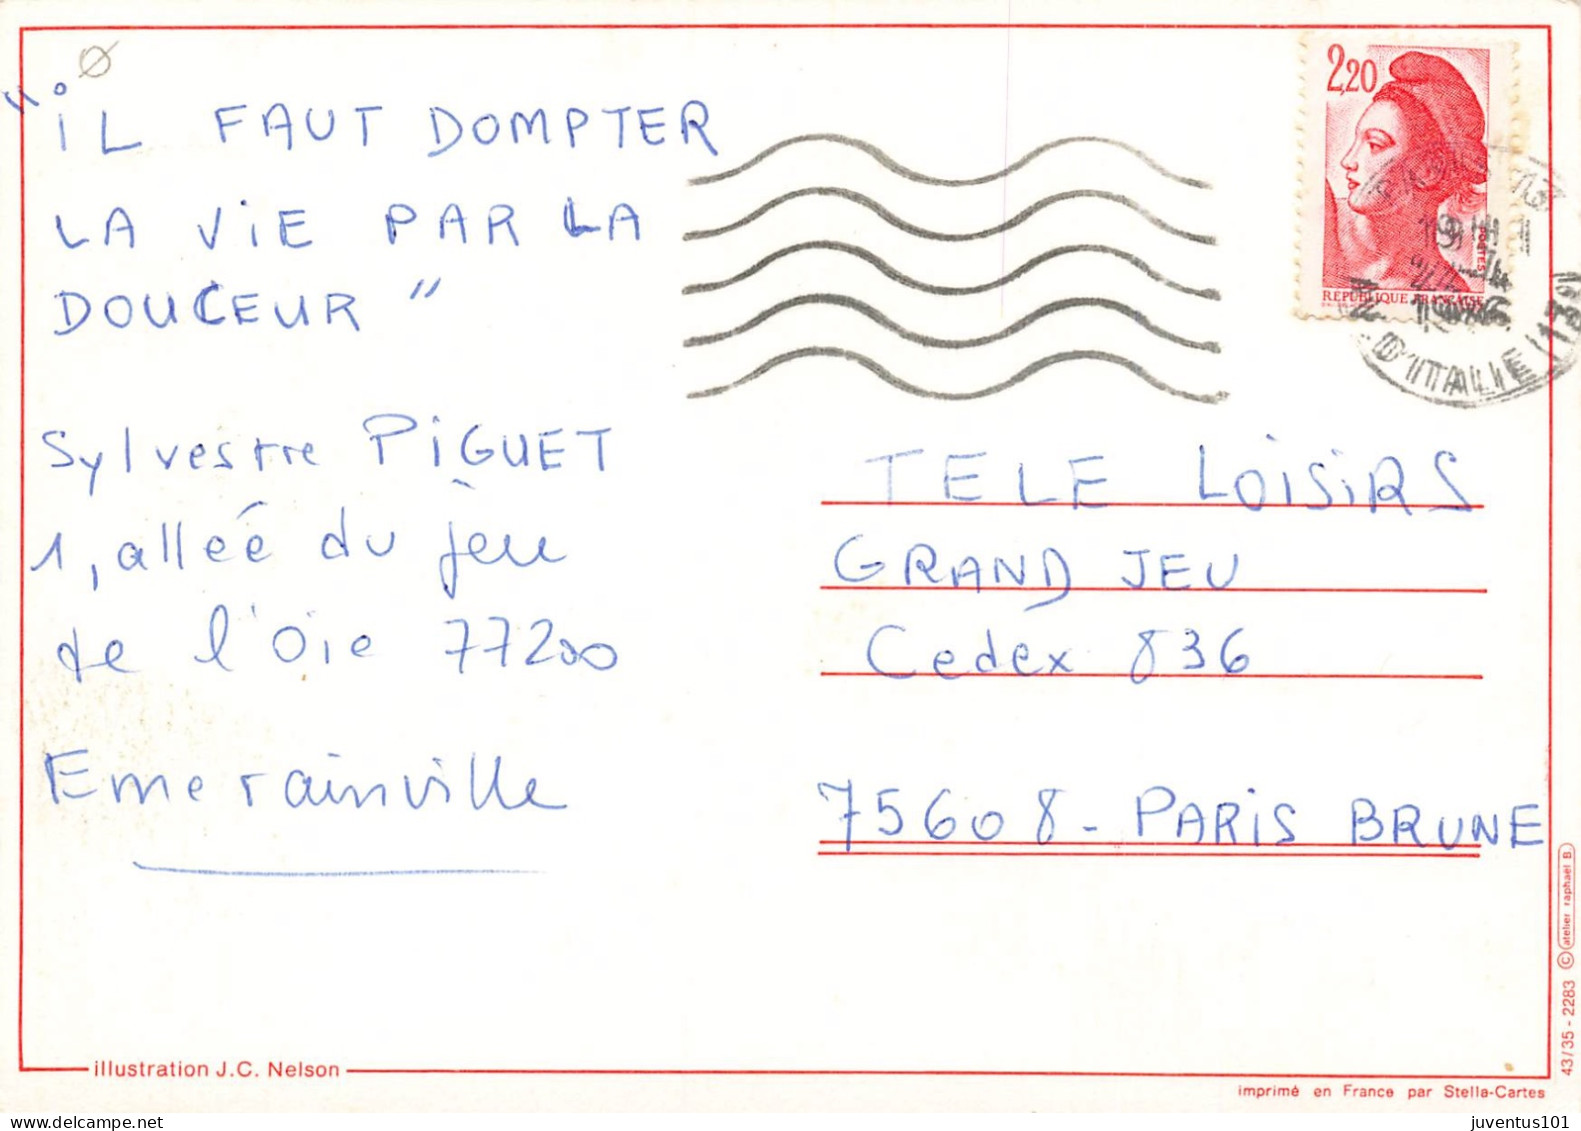 "iL FAUT DOMPTER
LA ViE PAR LA
DOUCEUR"
Sylvestre PiGUET
1, alleé du jeu
de l'Oie 77200
Emerainville
2,20
POSTES
REPUBLIQUE FRANÇAISE
D'ITALIE (13e)
TELE LOiSiRS
GRAND JEU
Cedex 836
75608 - PARiS BRUNE
illustration J.C. Nelson
imprimé en France par Stella-Cartes
43/35 - 2283 © atelier raphaël B
juventus101